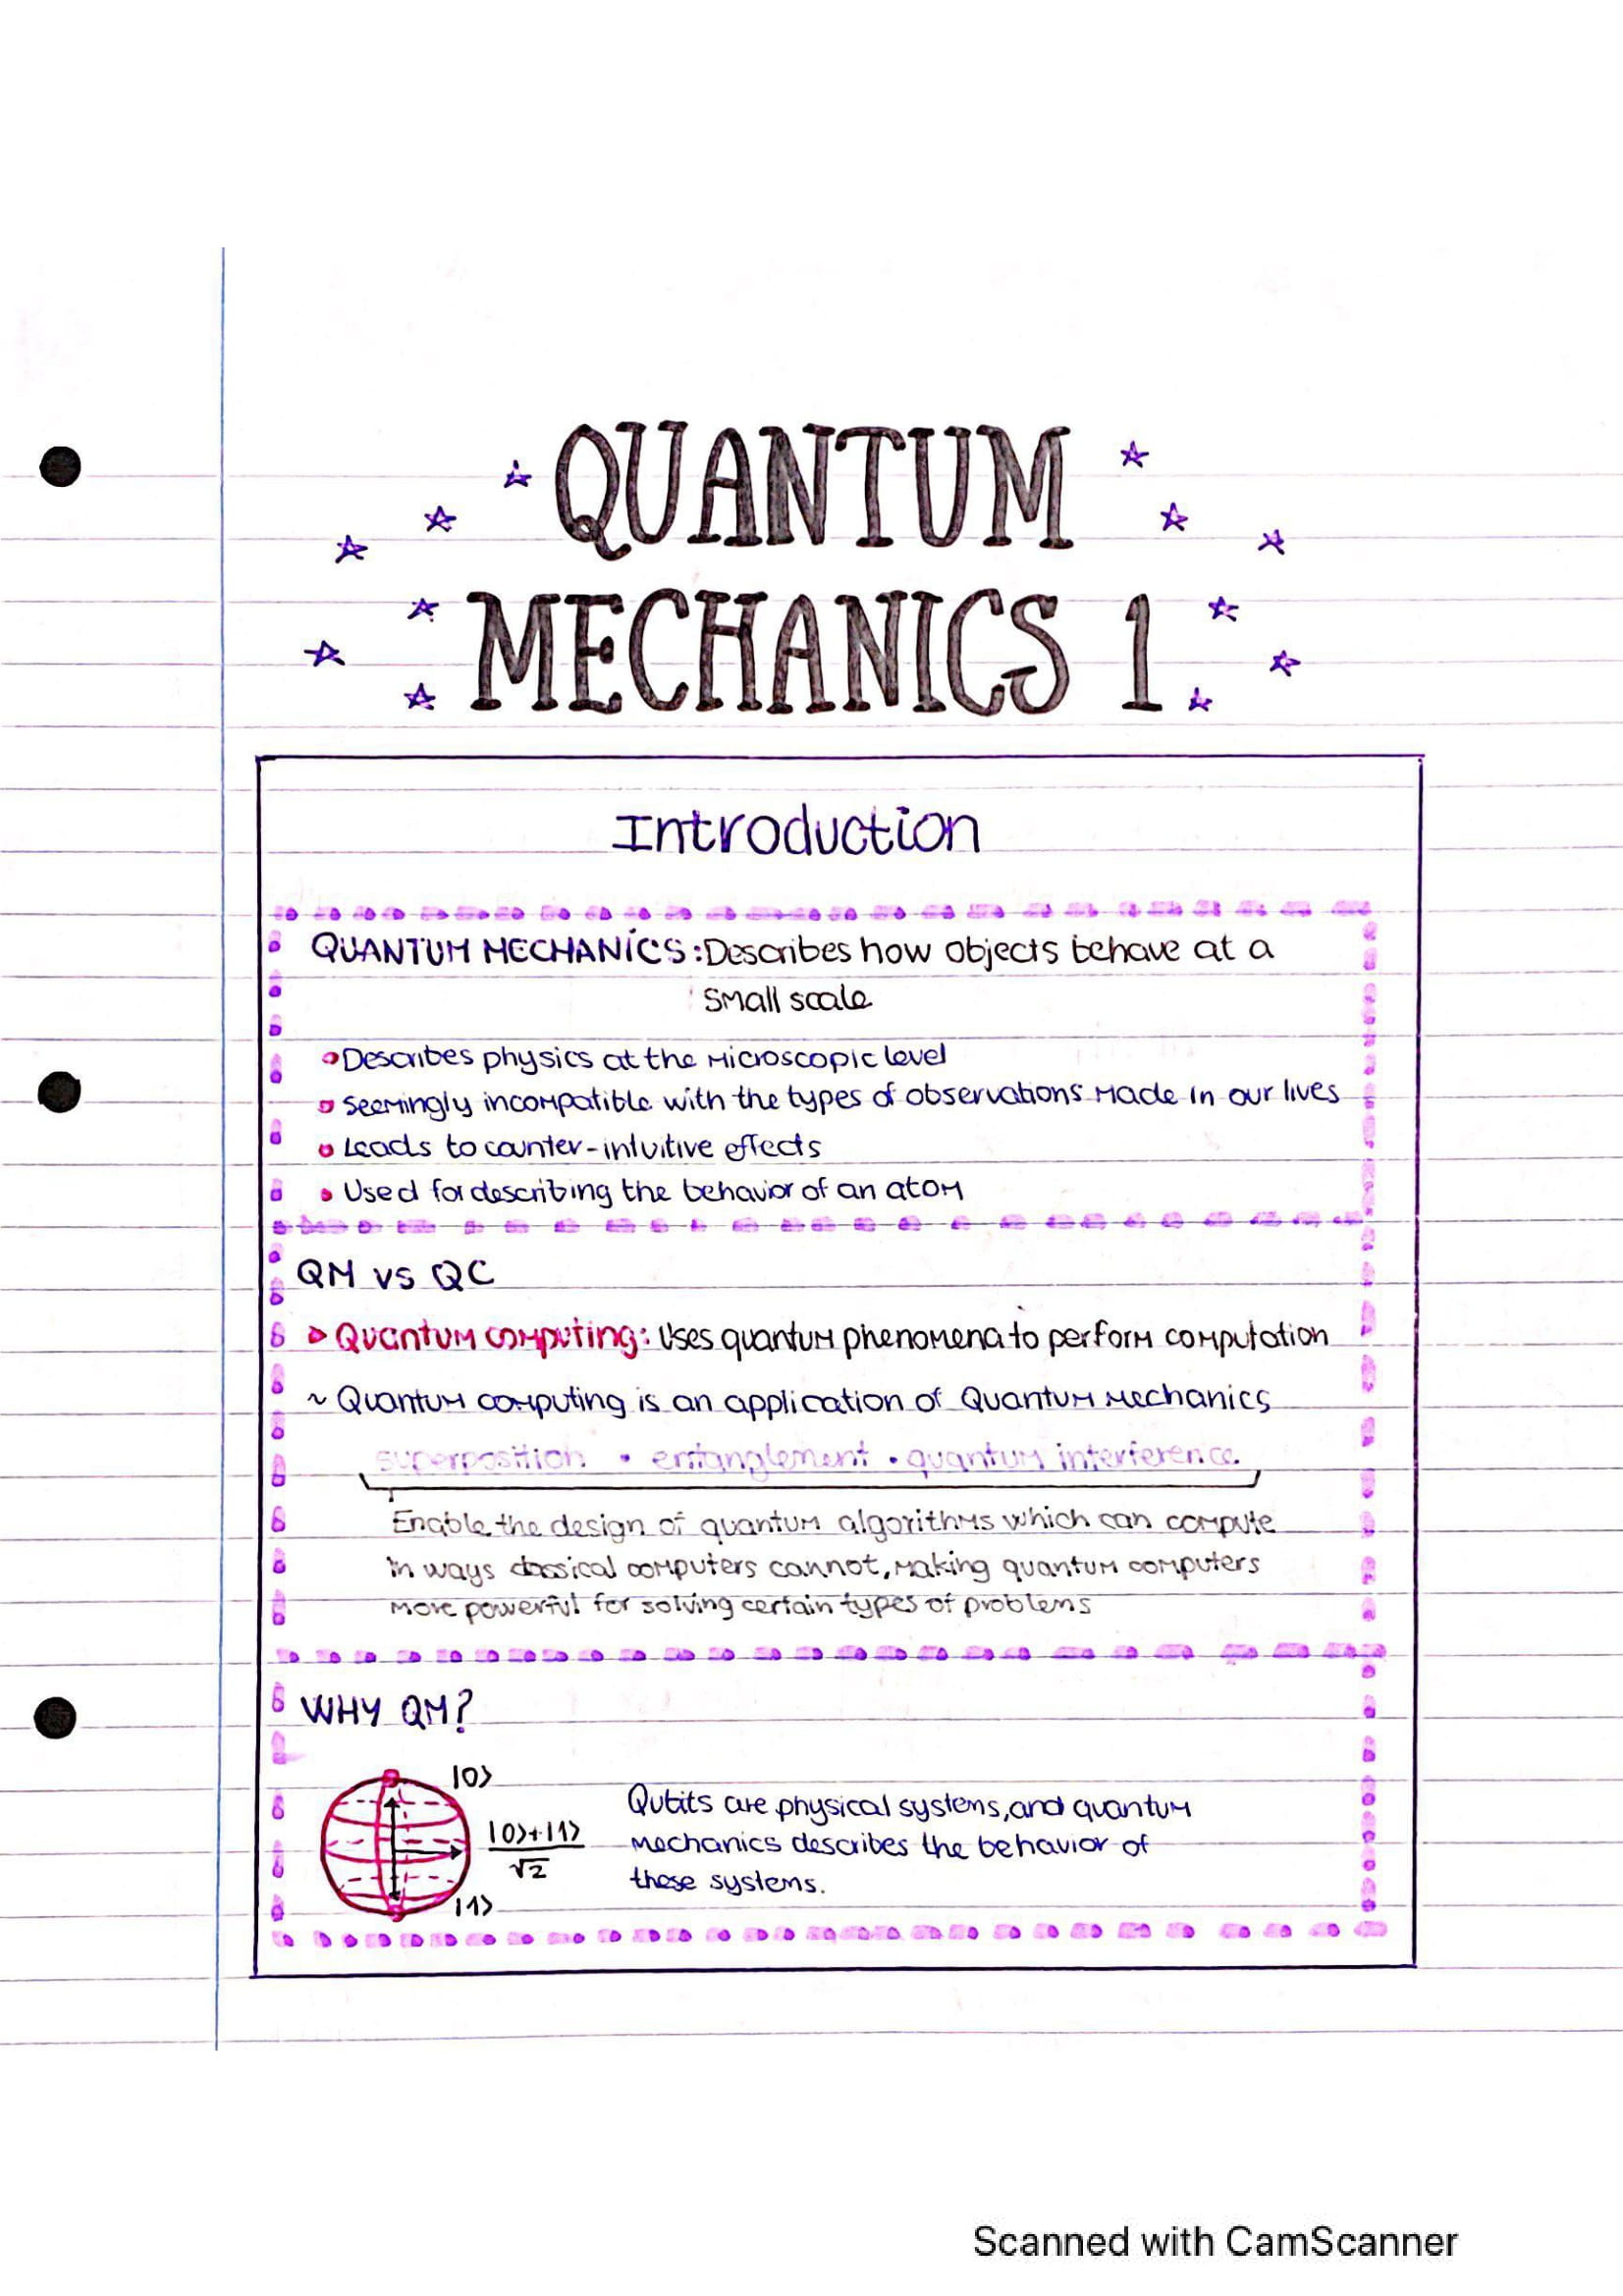 QUANTUM
MECHANICS 1
Introduction
QUANTUM MECHANICS: Describes how objects behave at a
small scale
Describes physics at the microscopic level
Seemingly incompatible with the types of observations made in our lives
Leads to counter-intuitive effects
Used for describing the behavior of an atom
QM vs QC
Quantum computing: Uses quantum phenomena to perform computation
~ Quantum computing is an application of Quantum Mechanics
superposition • entanglement • quantum interference
Enable the design of quantum algorithms which can compute
in ways classical computers cannot, making quantum computers
more powerful for solving certain types of problems
WHY QM?
|0⟩
|0⟩+|1⟩
√2
|1⟩
Qubits are physical systems, and quantum
mechanics describes the behavior of
these systems.
Scanned with CamScanner